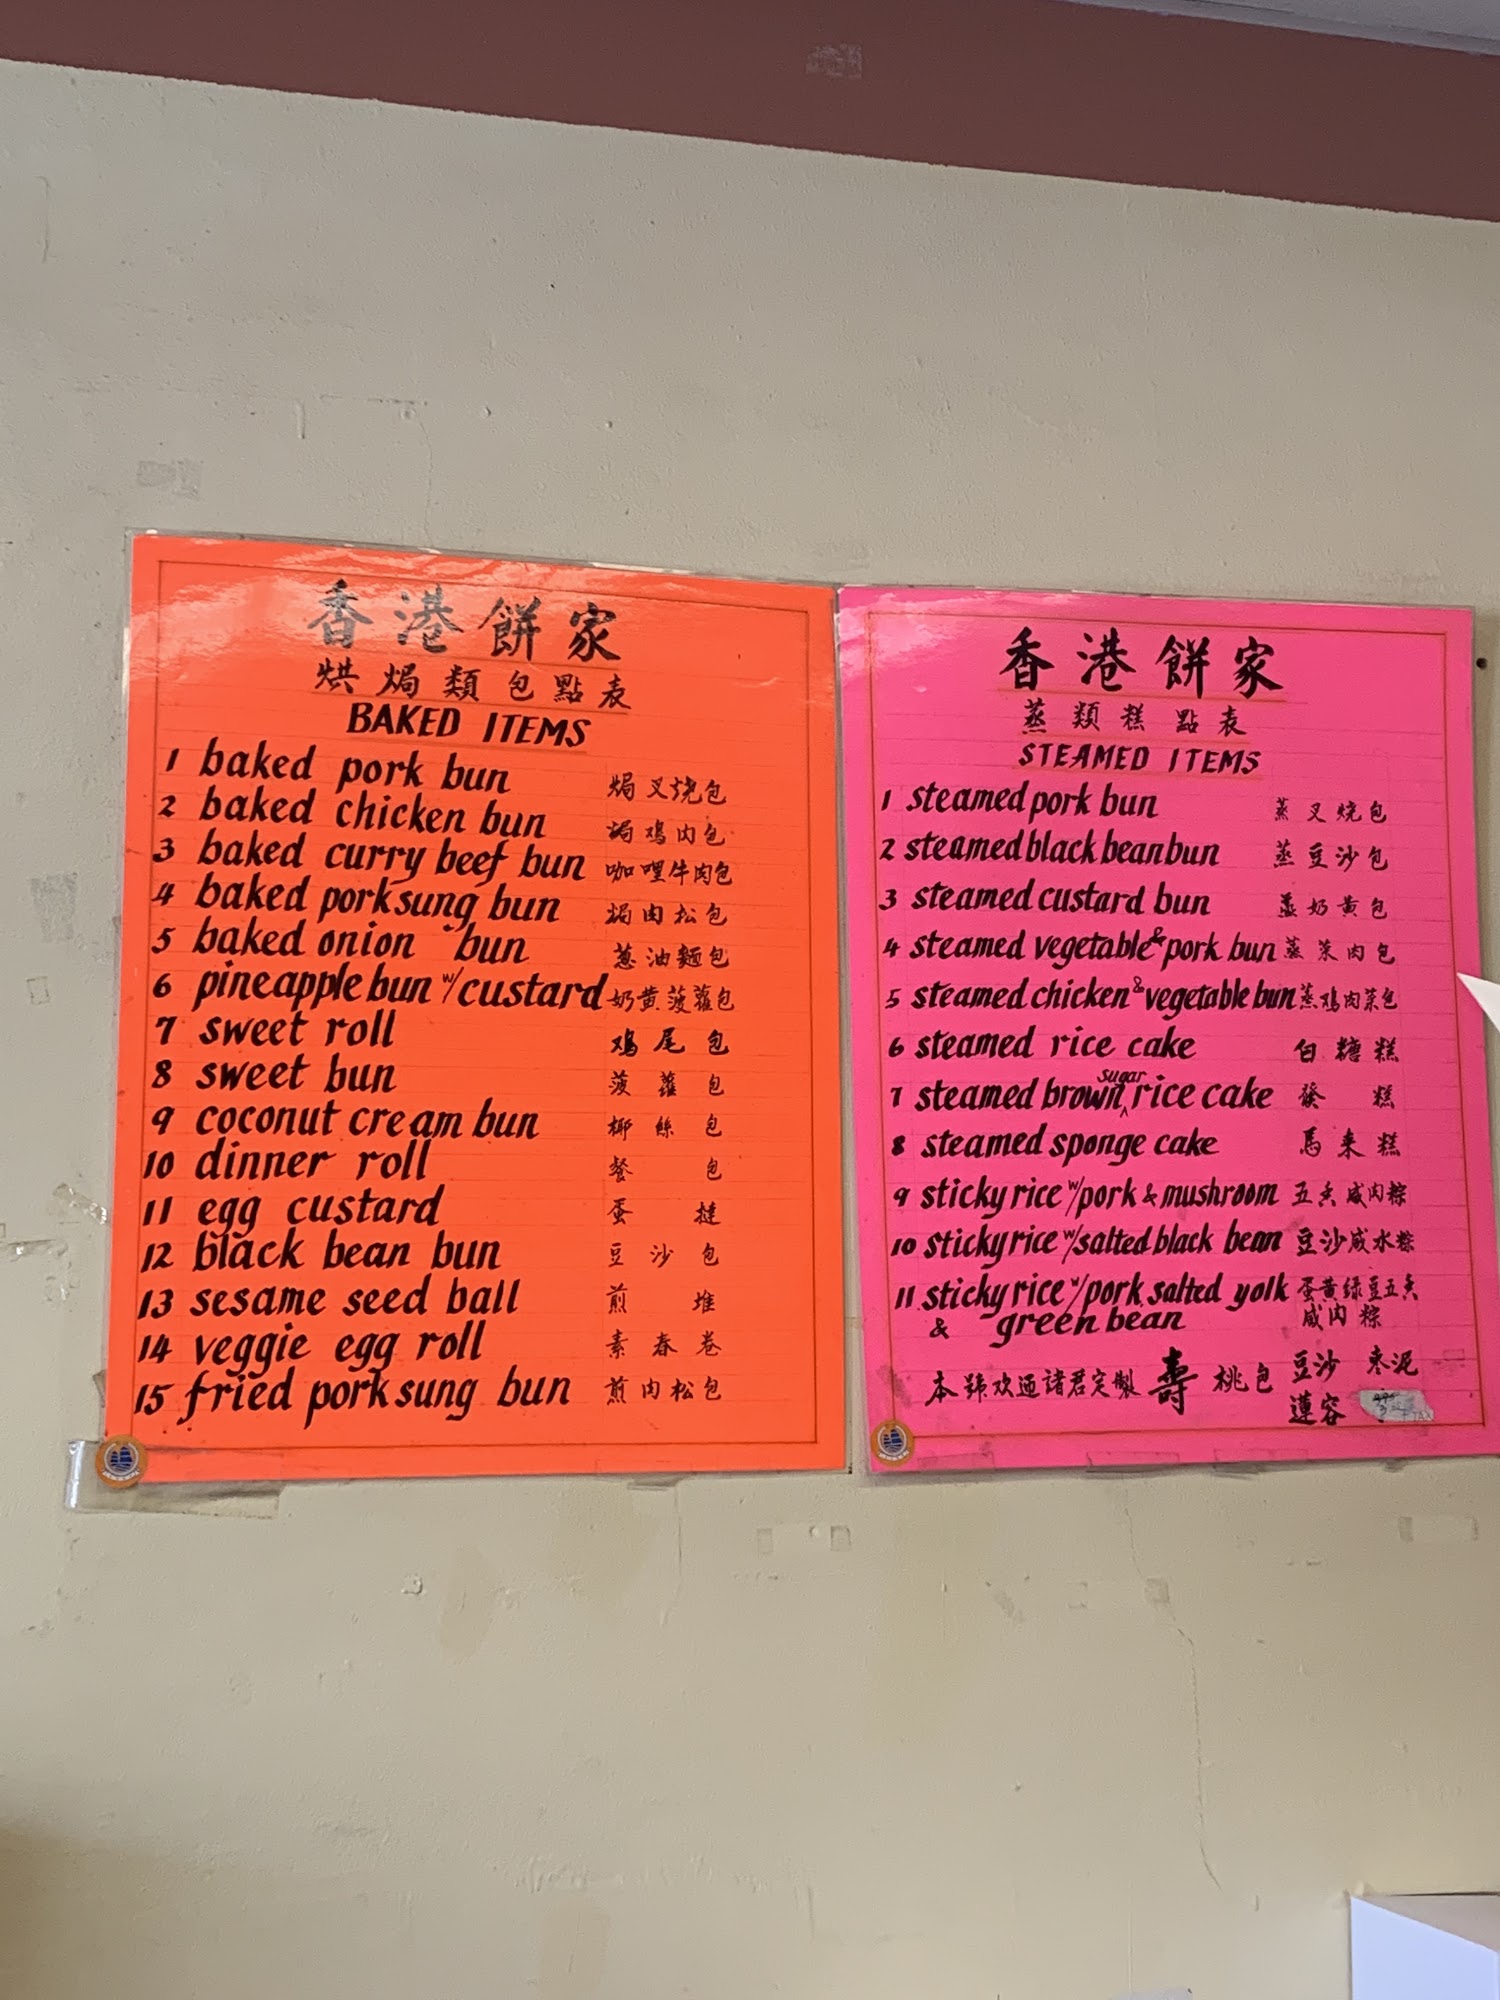 香港餅家
烘焗類包點表
BAKED ITEMS
1 baked pork bun 焗叉烧包
2 baked chicken bun 焗鸡肉包
3 baked curry beef bun 咖哩牛肉包
4 baked pork sung bun 焗肉松包
5 baked onion bun 葱油麵包
6 pineapple bun w/custard 奶黄菠蘿包
7 sweet roll 鸡尾包
8 sweet bun 菠蘿包
9 coconut cream bun 椰絲包
10 dinner roll 餐包
11 egg custard 蛋撻
12 black bean bun 豆沙包
13 sesame seed ball 煎堆
14 veggie egg roll 素春卷
15 fried pork sung bun 煎肉松包
香港餅家
蒸類糕點表
STEAMED ITEMS
1 steamed pork bun 蒸叉烧包
2 steamed black bean bun 蒸豆沙包
3 steamed custard bun 蒸奶黄包
4 steamed vegetable & pork bun 蒸菜肉包
5 steamed chicken & vegetable bun 蒸鸡肉菜包
6 steamed rice cake 白糖糕
7 steamed brown sugar rice cake 發糕
8 steamed sponge cake 馬来糕
9 sticky rice w/pork & mushroom 五香咸肉粽
10 sticky rice w/salted black bean 豆沙咸水粽
11 sticky rice w/pork, salted yolk 蛋黄绿豆五香
& green bean 咸肉粽
本號欢迎諸君定製 壽桃包 豆沙 枣泥
蓮容